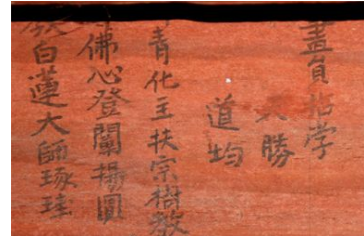 負拈学
勝
道均
青化主扶宗樹教
佛心登闡揚圓
白蓮大師琢珪